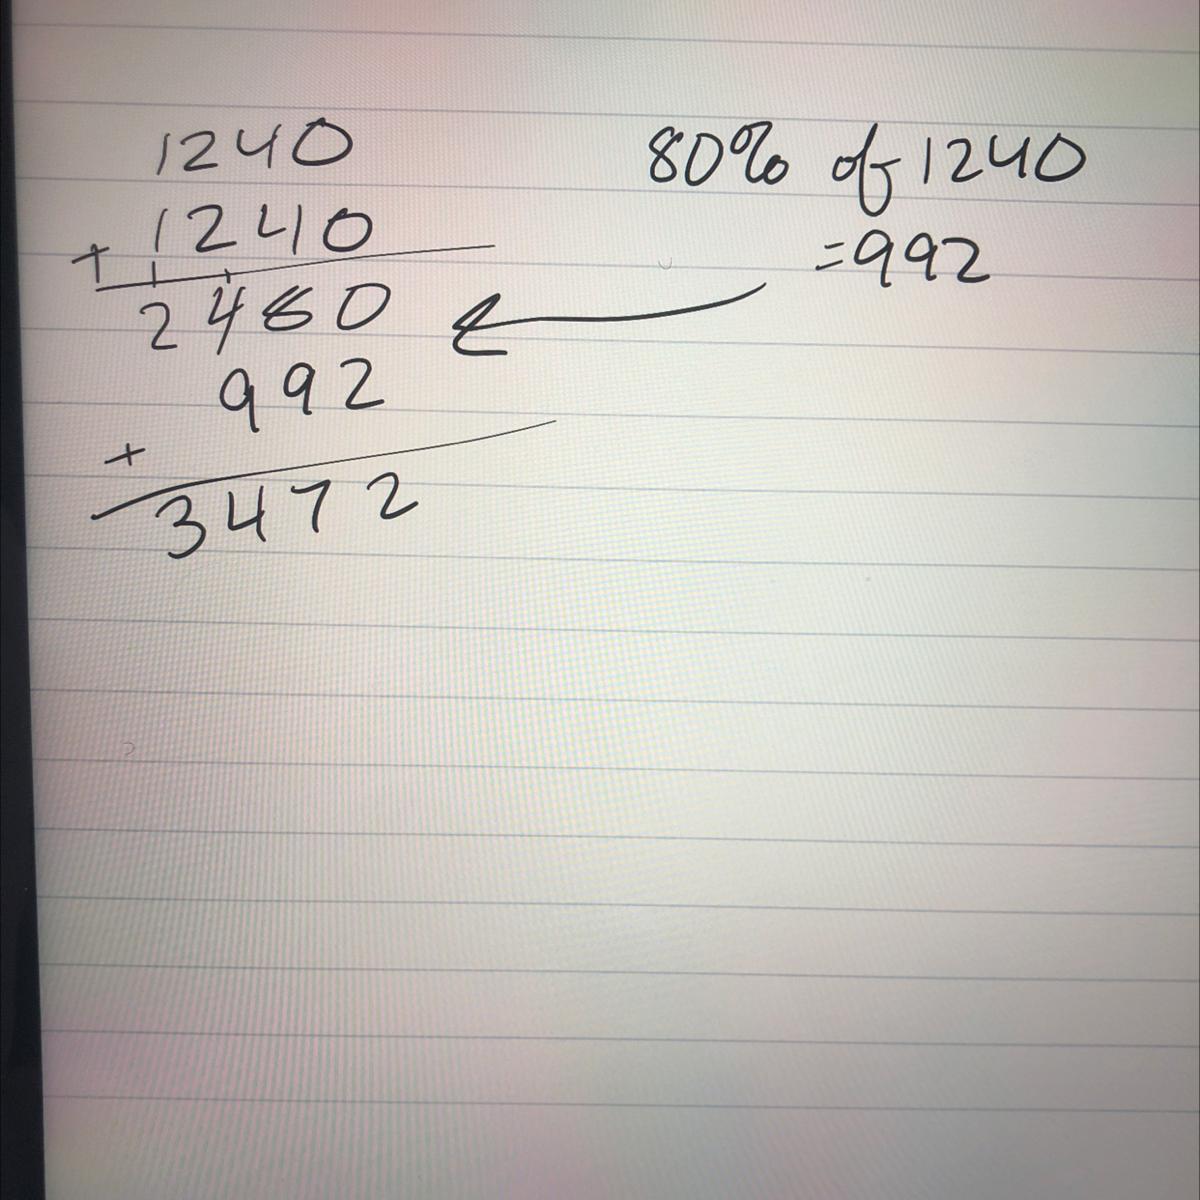 1240
+ 1240
2480
+ 992
3472
80% of 1240
=992